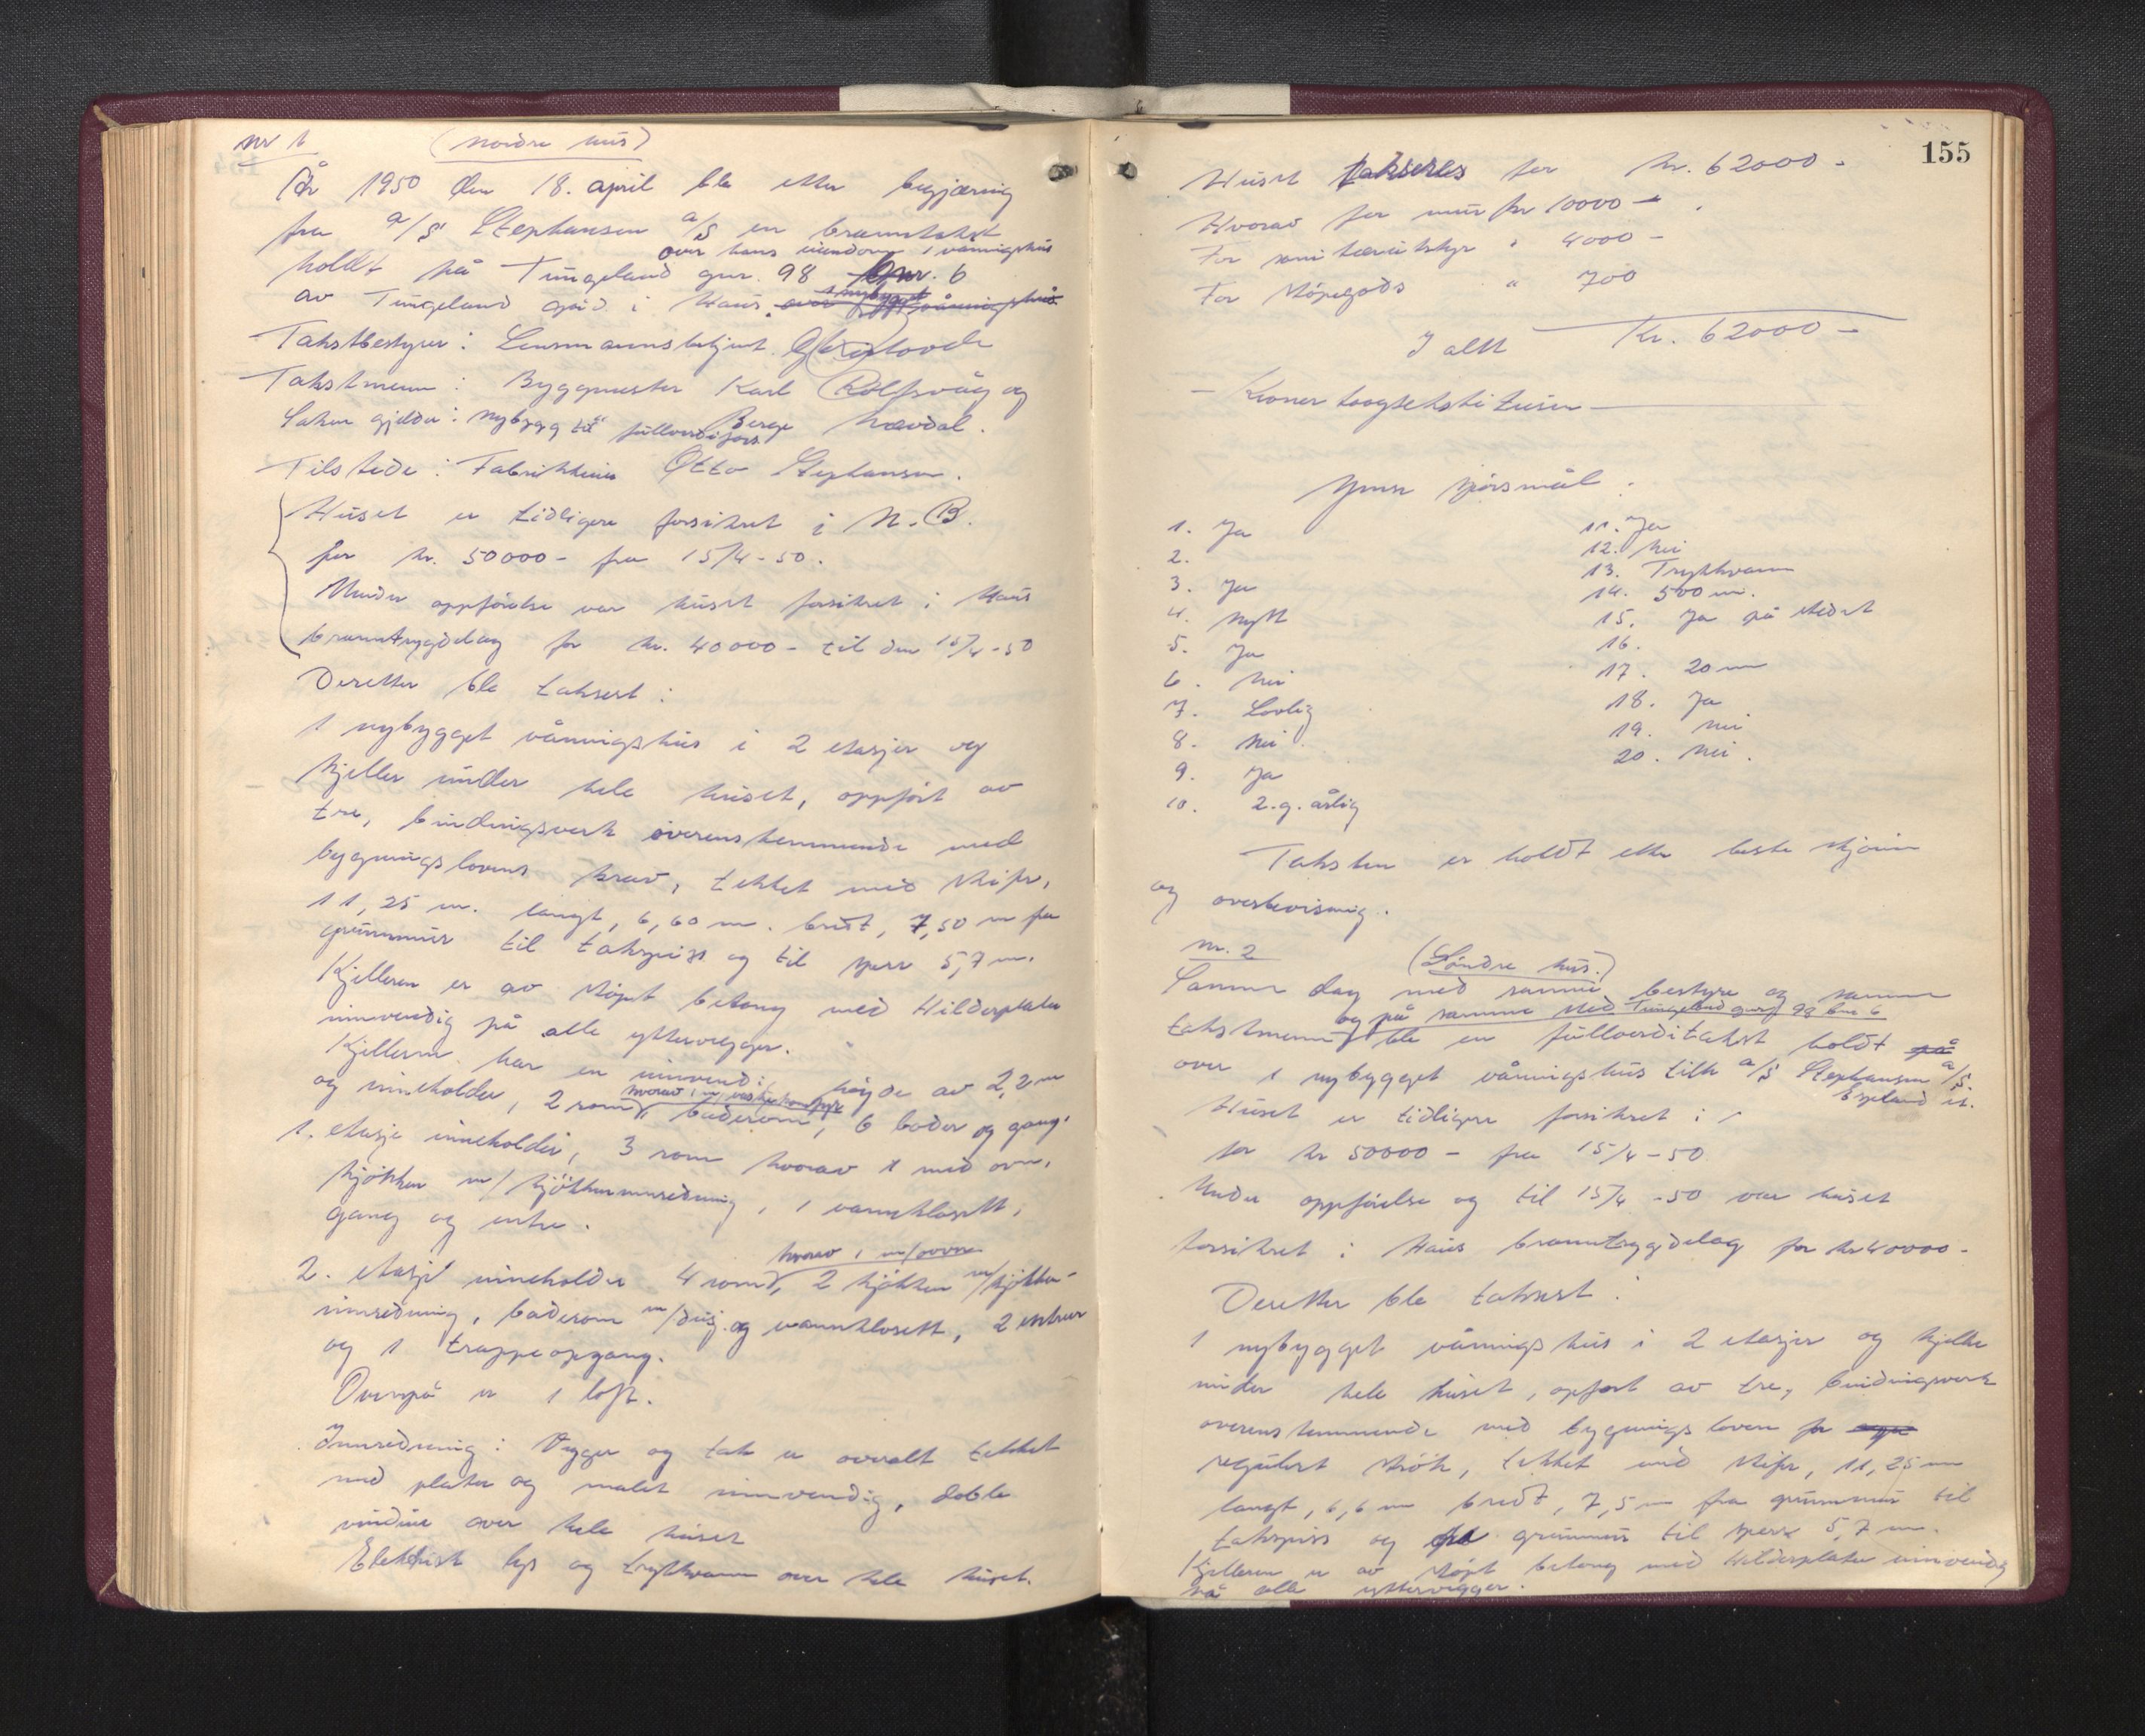 nr 1 (Nordre hus)
År 1950 den 18. april ble etter begjæring
fra a/s Stephansen a/s en branntakst
over hans eiendom 1 våningshus
holdt på Tungeland gnr. 98 bnr. 6
av Tungeland gård i Haus. over 1 nybygget våningshus
Takstbestyrer: Lensmannsbetjent
Takstmenn: Byggmester Karl Rolfsvåg og
Saken gjelder: nybygg til fullverdifors. Berge Havdal.
Tilstede: Fabrikkeier Otto Stephansen.
Huset er tidligere forsikret i N.B.
for kr. 50000- fra 15/4-50.
Under oppførelse var huset forsikret i Haus
branntrygdelag for kr. 40000- til den 15/4-50
Deretter ble taksert:
1 nybygget våningshus i 2 etasjer og
kjeller under hele huset, oppført av
tre, bindingsverk overensstemmende med
bygningslovens krav, tekket med skifer,
11,25 m. langt, 6,60 m. bredt, 7,50 m fra
grunnmur til takspiss og til sperr 5,7 m.
Kjelleren er av støpt betong med Wildesplater
innvendig på alle yttervegger.
Kjelleren har en innvendig høyde av 2,2 m
og inneholder, 2 rom, hvorav 1 m/vaskekomfyr baderom, 6 boder og gang.
1. etasje inneholder, 3 rom hvorav 1 med ovn,
kjøkken m/kjøkkeninnredning, 1 vannklosett,
gang og entre.
2. etasje inneholder 4 rom, hvorav 1 m/ovn 2 kjøkken m/kjøkken-
innredning, baderom m/dusj og vannklosett, 2 entreer
og 1 trappeopgang.
Ovenpå er 1 loft.
Innredning: Vegger og tak er overalt tekket
med plater og malet innvendig, doble
vinduer over hele huset
Elektrisk lys og trykkvann over hele huset.
155
Huset takseres for kr. 62000-
Hvorav for mur kr 10000-
For sanitærutstyr " 4000-
For støpegods " 700
I alt Kr. 62000-
- Kroner toogsekstitusen -
Ymse spørsmål.
1. Ja
2.
3. Ja
4. Nytt
5. Ja
6. Nei
7. Lovlig
8. Nei
9. Ja
10. 2.g. årlig
11. Ja
12. Nei
13. Trykkvann
14. 500 m.
15. Ja på stedet
16.
17. 20 m
18. Ja
19. Nei
20. Nei.
Taksten er holdt etter beste skjønn
og overbevisning.
nr. 2 (Søndre hus.)
Samme dag med samme bestyrer og samme
og på samme sted Tungeland gnr 98 bnr 6
takstmenn ble en fullverditakst holdt på
over 1 nybygget våningshus tilh a/s Stephansen a/s.
Espeland st.
Huset er tidligere forsikret i
for kr 50000- fra 15/4-50
Under oppførelse og til 15/4-50 var huset
forsikret i Haus branntrygdelag for kr 40000-
Deretter ble taksert:
1 nybygget våningshus i 2 etasjer og kjeller
under hele huset, opført av tre, bindingsverk
overensstemmende med bygningsloven for
regulert strøk, tekket med skifer, 11,25 m
langt, 6,6 m bredt, 7,5 m fra grunnmur til
takspiss og fra grunnmur til sperr 5,7 m.
Kjelleren er av støpt betong med Wildesplater innvendig
på alle yttervegger.